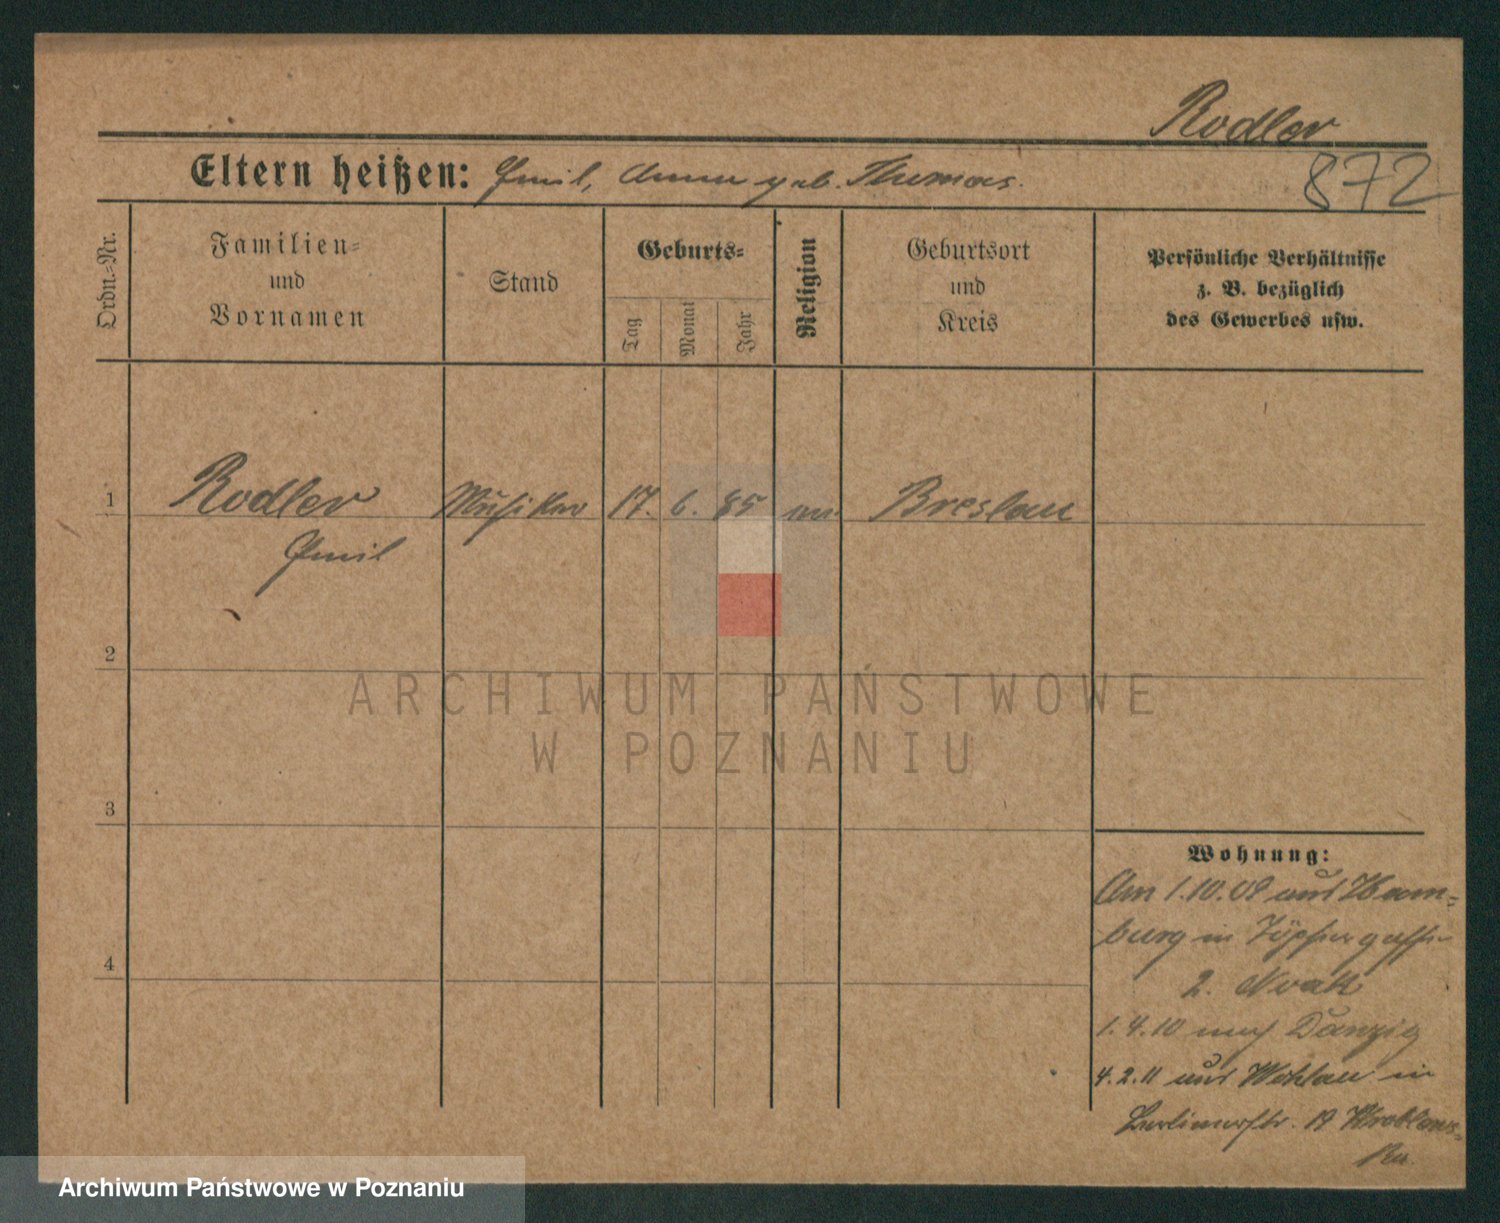 Rodler
872
Eltern heißen: Emil, Anna geb. Thomas.
Ordn.-Nr.
Familien-
und
Vornamen
Stand
Geburts-
Tag
Monat
Jahr
Religion
Geburtsort
und
Kreis
Persönliche Verhältnisse
z. B. bezüglich
des Gewerbes usw.
1 Rodler Musiker 17. 6. 85 Breslau
Emil
2
3
4
Wohnung:
Am 1.10.09 aus Ham-
burg in Töpfergasse
2. Novak
1.4.10 nach Danzig
4.2.11 aus Wohlau in
Berlinerstr. 19
ARCHIWUM PAŃSTWOWE
W POZNANIU
Archiwum Państwowe w Poznaniu